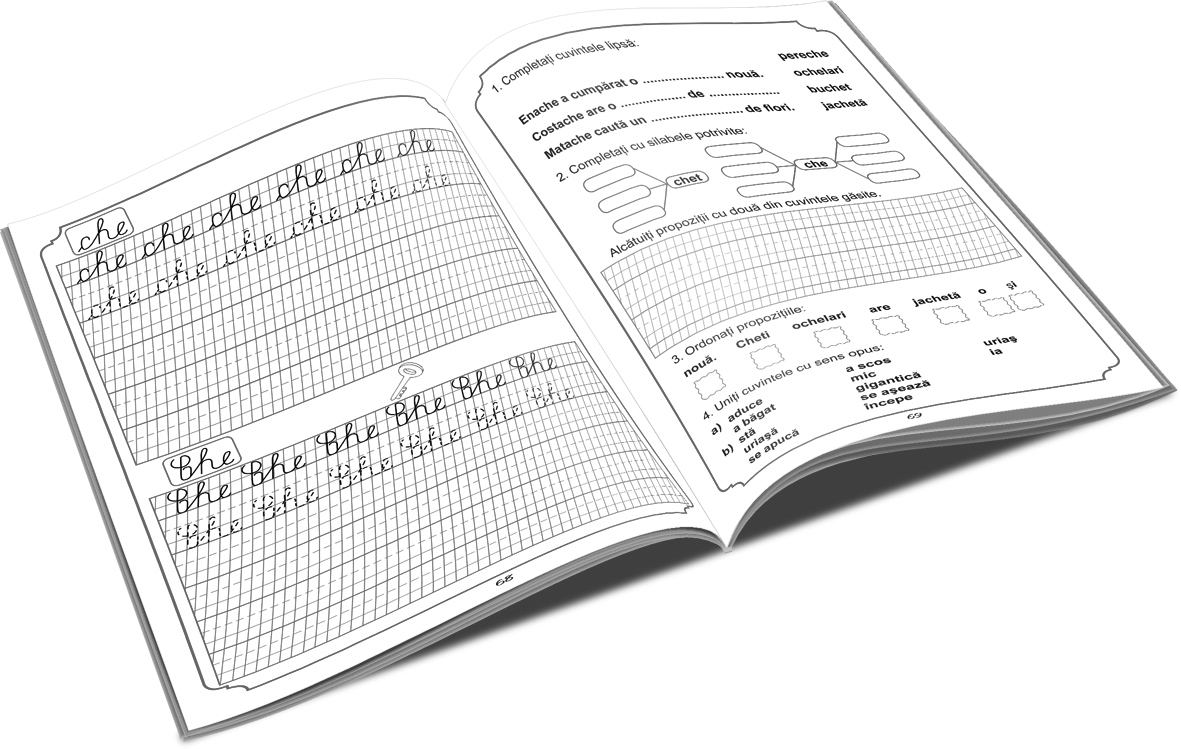 che
che che che che che che
che che che che che che
Che
Che Che Che Che Che Che
Che Che Che Che Che Che
68
1. Completați cuvintele lipsă:
Enache a cumpărat o ...................... nouă.
Costache are o ................. de ...................
Matache caută un ........................ de flori.
pereche
ochelari
buchet
jachetă
2. Completați cu silabele potrivite:
chet
che
Alcătuiți propoziții cu două din cuvintele găsite.
3. Ordonați propozițiile:
nouă. Cheti ochelari are jachetă o și
4. Uniți cuvintele cu sens opus:
a) aduce
a băgat
stă
b) uriașă
se apucă
a scos
mic
gigantică
se așează
începe
uriaș
ia
69